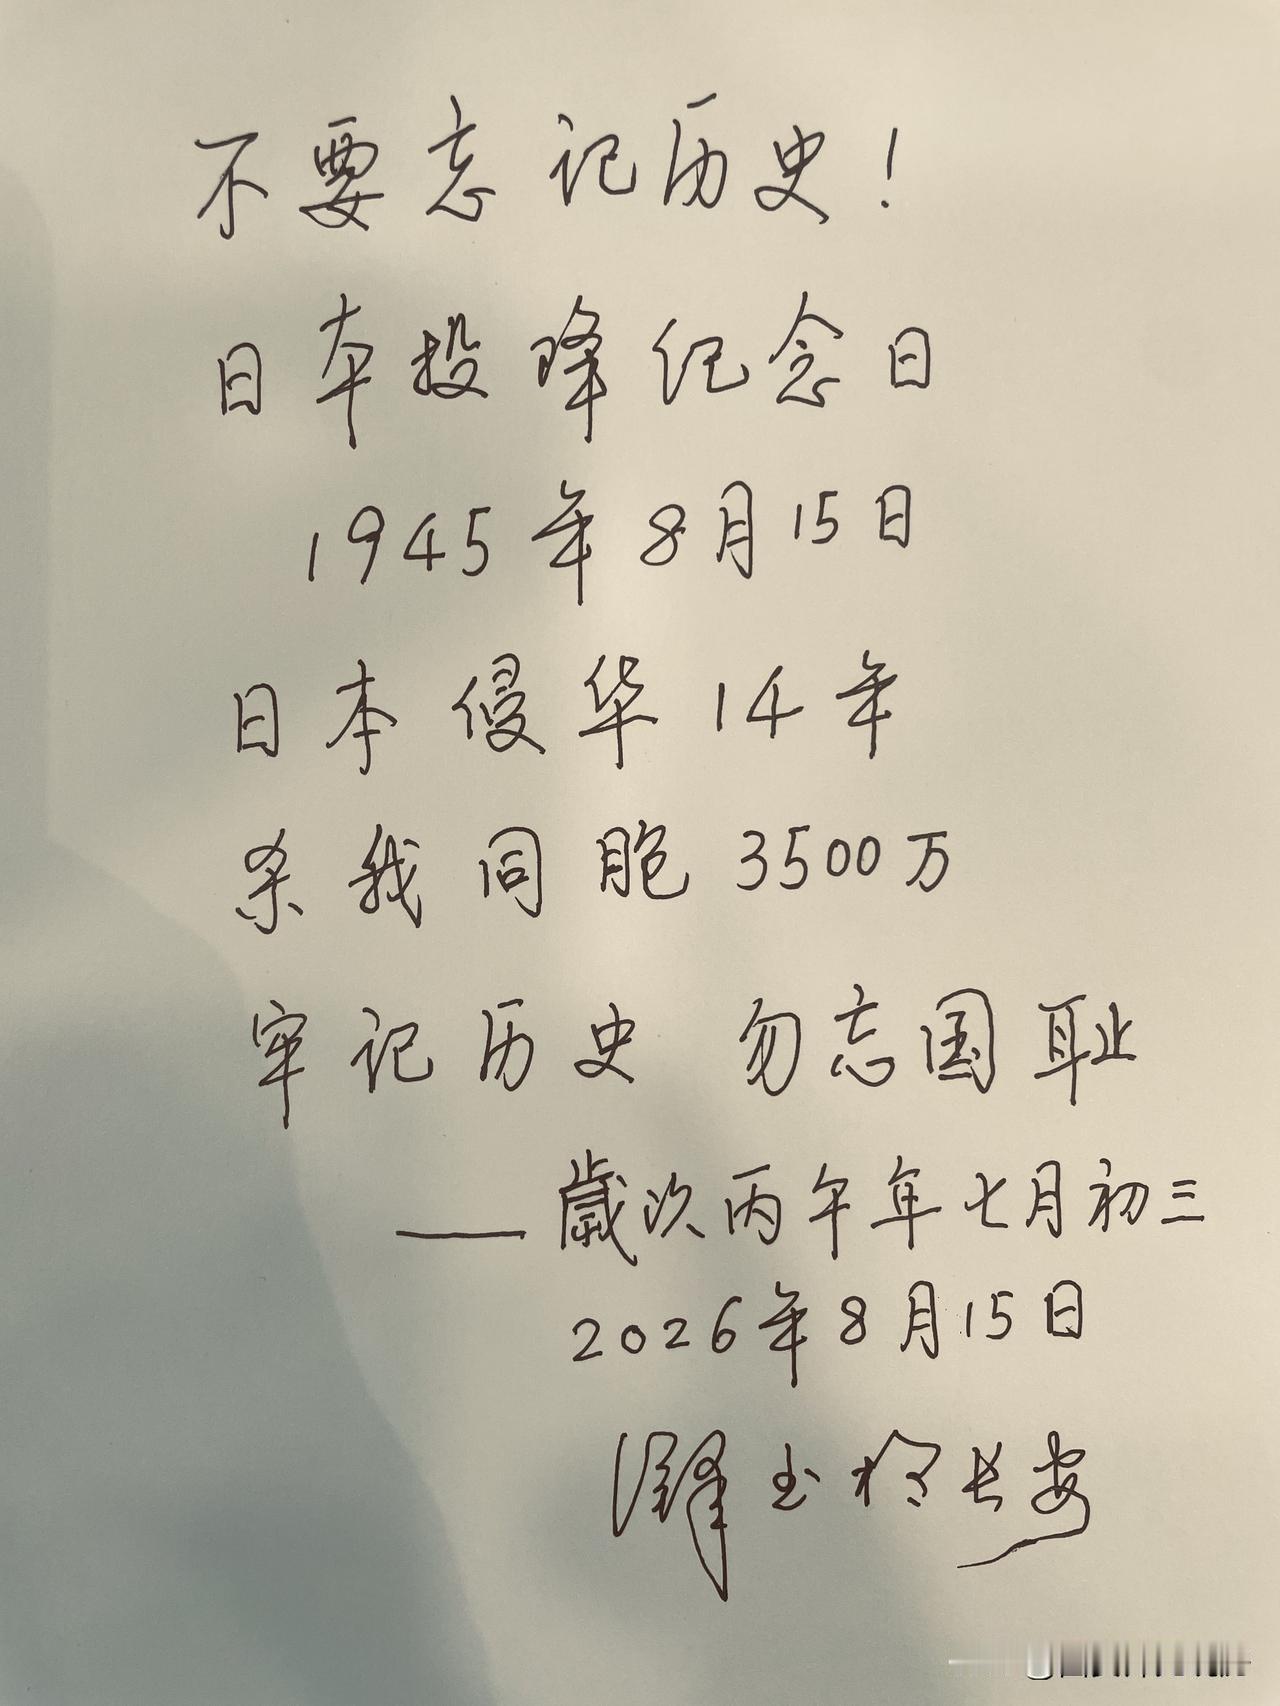 不要忘记历史！
日本投降纪念日
1945年8月15日
日本侵华14年
杀我同胞3500万
牢记历史 勿忘国耻
——歲次丙午年七月初三
2026年8月15日
锋书於长安